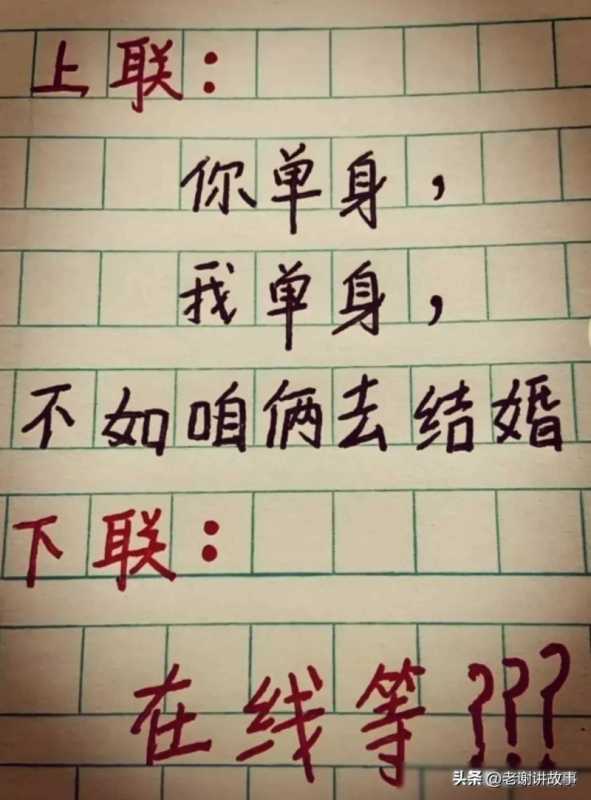 上联：
你单身，
我单身，
不如咱俩去结婚
下联：
在线等???
头条 @老谢讲故事